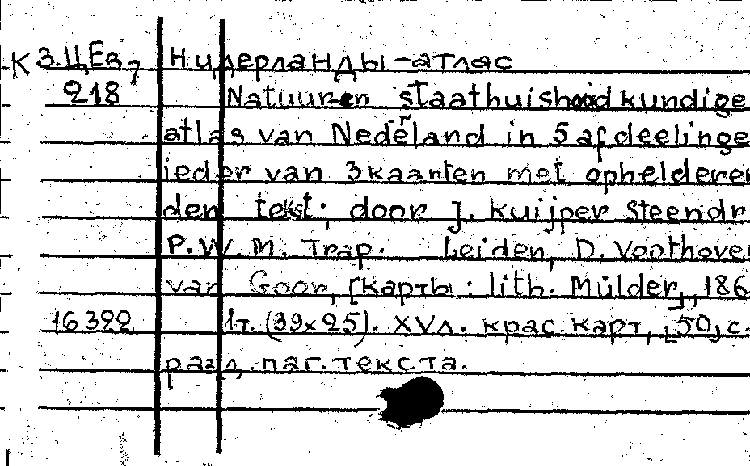 К 3.ЦЕв7 Нидерланды-атлас
218 Natuur-en staathuishoudkundige
atlas van Nedeřland in 5 afdeelinge
ieder van 3 kaarten met ophelderen
den tekst; door J. Kuijper Steendr.
P.W.M. Trap. Leiden, D. Noothoven
van Goor, [Карты: lith. Mülder], 186
16322 1т. (39x25). XV л. крас карт, [50] с.
разд. паг. текста.